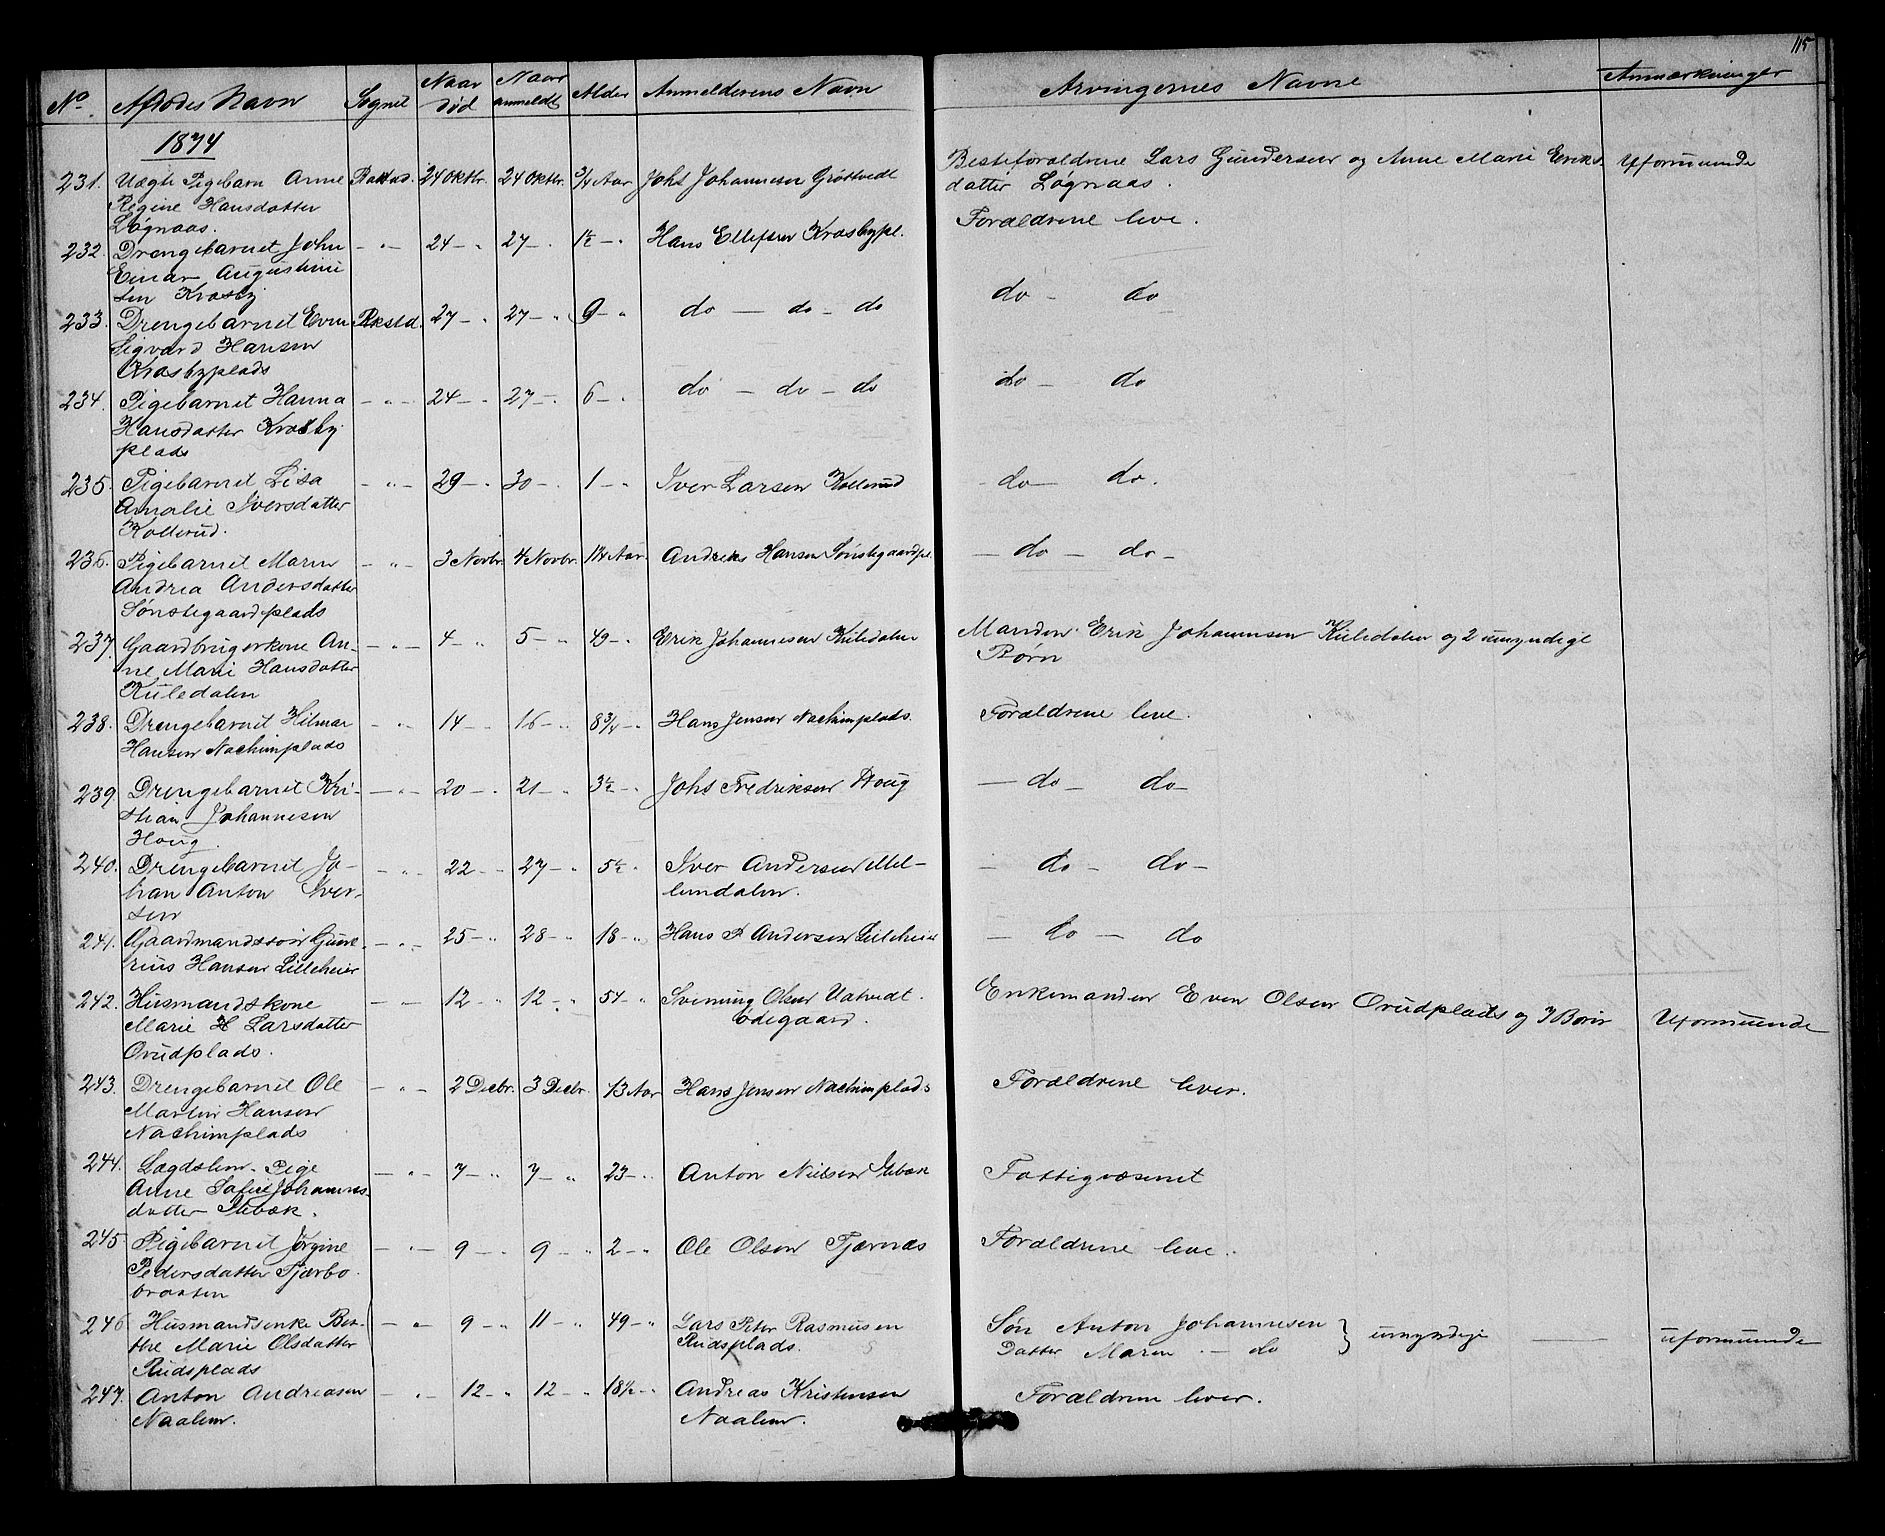 115
No. Afdødes Navn Sognet Naar død Naar anmeldt Alder Anmelderens Navn Arvingernes Navne Anmærkninger
1874
231. Uægte Pigebarn Anne 24 Oktbr. 24 Oktbr. 3/4 Aar Johs Johannesen Grøttvedt Besteforældrene Lars Gundersen og Anne Marie Eriks- Uformuende
Regine Hansdatter datter Løgnaas.
Løgnaas.
232. Drengebarnet John - " - 24 - " 27 - " 1 1/2 - " Hans Ellefsen Kræsbypl. Forældrene leve.
Einar Augustini
sen Kræsby
233. Drengebarnet Even Rkstd. 27 - " 27 - " 9 - " do - do - do do - do
Sigvard Hansen
Kræsbyplads
234. Pigebarnet Hanna - " - 24 - " 27 - " 6 - " do - do - do do - do
Hansdatter Kræsby-
plads
235. Pigebarnet Lisa - " - 29 - " 30 - " 1 - " Iver Larsen Kollerud - do - do.
Amalie Iversdatter
Kollerud.
236. Pigebarnet Maren - " - 3 Novbr. 4 Novbr. 1 3/4 Aar. Andreas Hansen Sønstegaardpl. - do - do -
Andrea Andersdatter
Sønstegaardplads
237. Gaardbrugerkone An- - " - 4 - " 5 - " 49 - " Erik Johannesen Kuledalen Manden Erik Johannesen Kuledalen og 2 umyndige
ne Marie Hansdatter Børn
Kuledalen
238. Drengebarnet Hilmar - " - 14 - " 16 - " 8 3/4 - " Hans Jensen Nachimplads. Forældrene leve.
Hansen Nachimplads
239. Drengebarnet Kri- - " - 20 - " 21 - " 3 1/2 - " Johs Fredriksen Houg - do - do -
stian Johannesen
Houg.
240. Drengebarnet Jo- - " - 22 - " 27 - " 5 1/2 " Iver Andersen Mel- - do - do -
han Anton Iver- lemdalen.
sen
241. Gaardmandssøn - " - 25 - " 28 - " 18 - " Hans P Andersen Lilleheier - do - do
Hansen Lilleheier
242. Husmandskone - " - 12 - " 12 - " 54 - " Svenning Olsen Uatvedt. Enkemanden Even Olsen Ovudplads og 3 Børn Uformuende
Marie H Larsdatter Ødegaard.
Ovudplads.
243. Drengebarnet Ole - " - 2 Decbr. 3 Decbr. 13 Aar Hans Jensen Nachimplads Forældrene lever.
Martin Hansen
Nachimplads
244. Lægdslem. Pige - " - 7 - " 7 - " 23 - " Anton Nielsen Stebæk Fattigvæsenet
Anne Sofie Johannes-
datter Stebæk.
245. Pigebarnet Jørgine - " - 9 - " 9 - " 2 - " Ole Olsen Tjærnæs Forældrene leve.
Pedersdatter Tjærbo-
braaten
246 Husmandsenke Ber- - " - 9 - " 11 - " 49 - " Lars Peter Rasmusen Søn Anton Johannesen } umyndige — uformuende
the Marie Olsdatter Rudsplads. Datter Maren - do
Rudsplads
247. Anton Andreasen - " - 12 - " 12 - " 18 1/2 - " Andreas Kristensen Forældrene lever.
Naalem. Naalem.